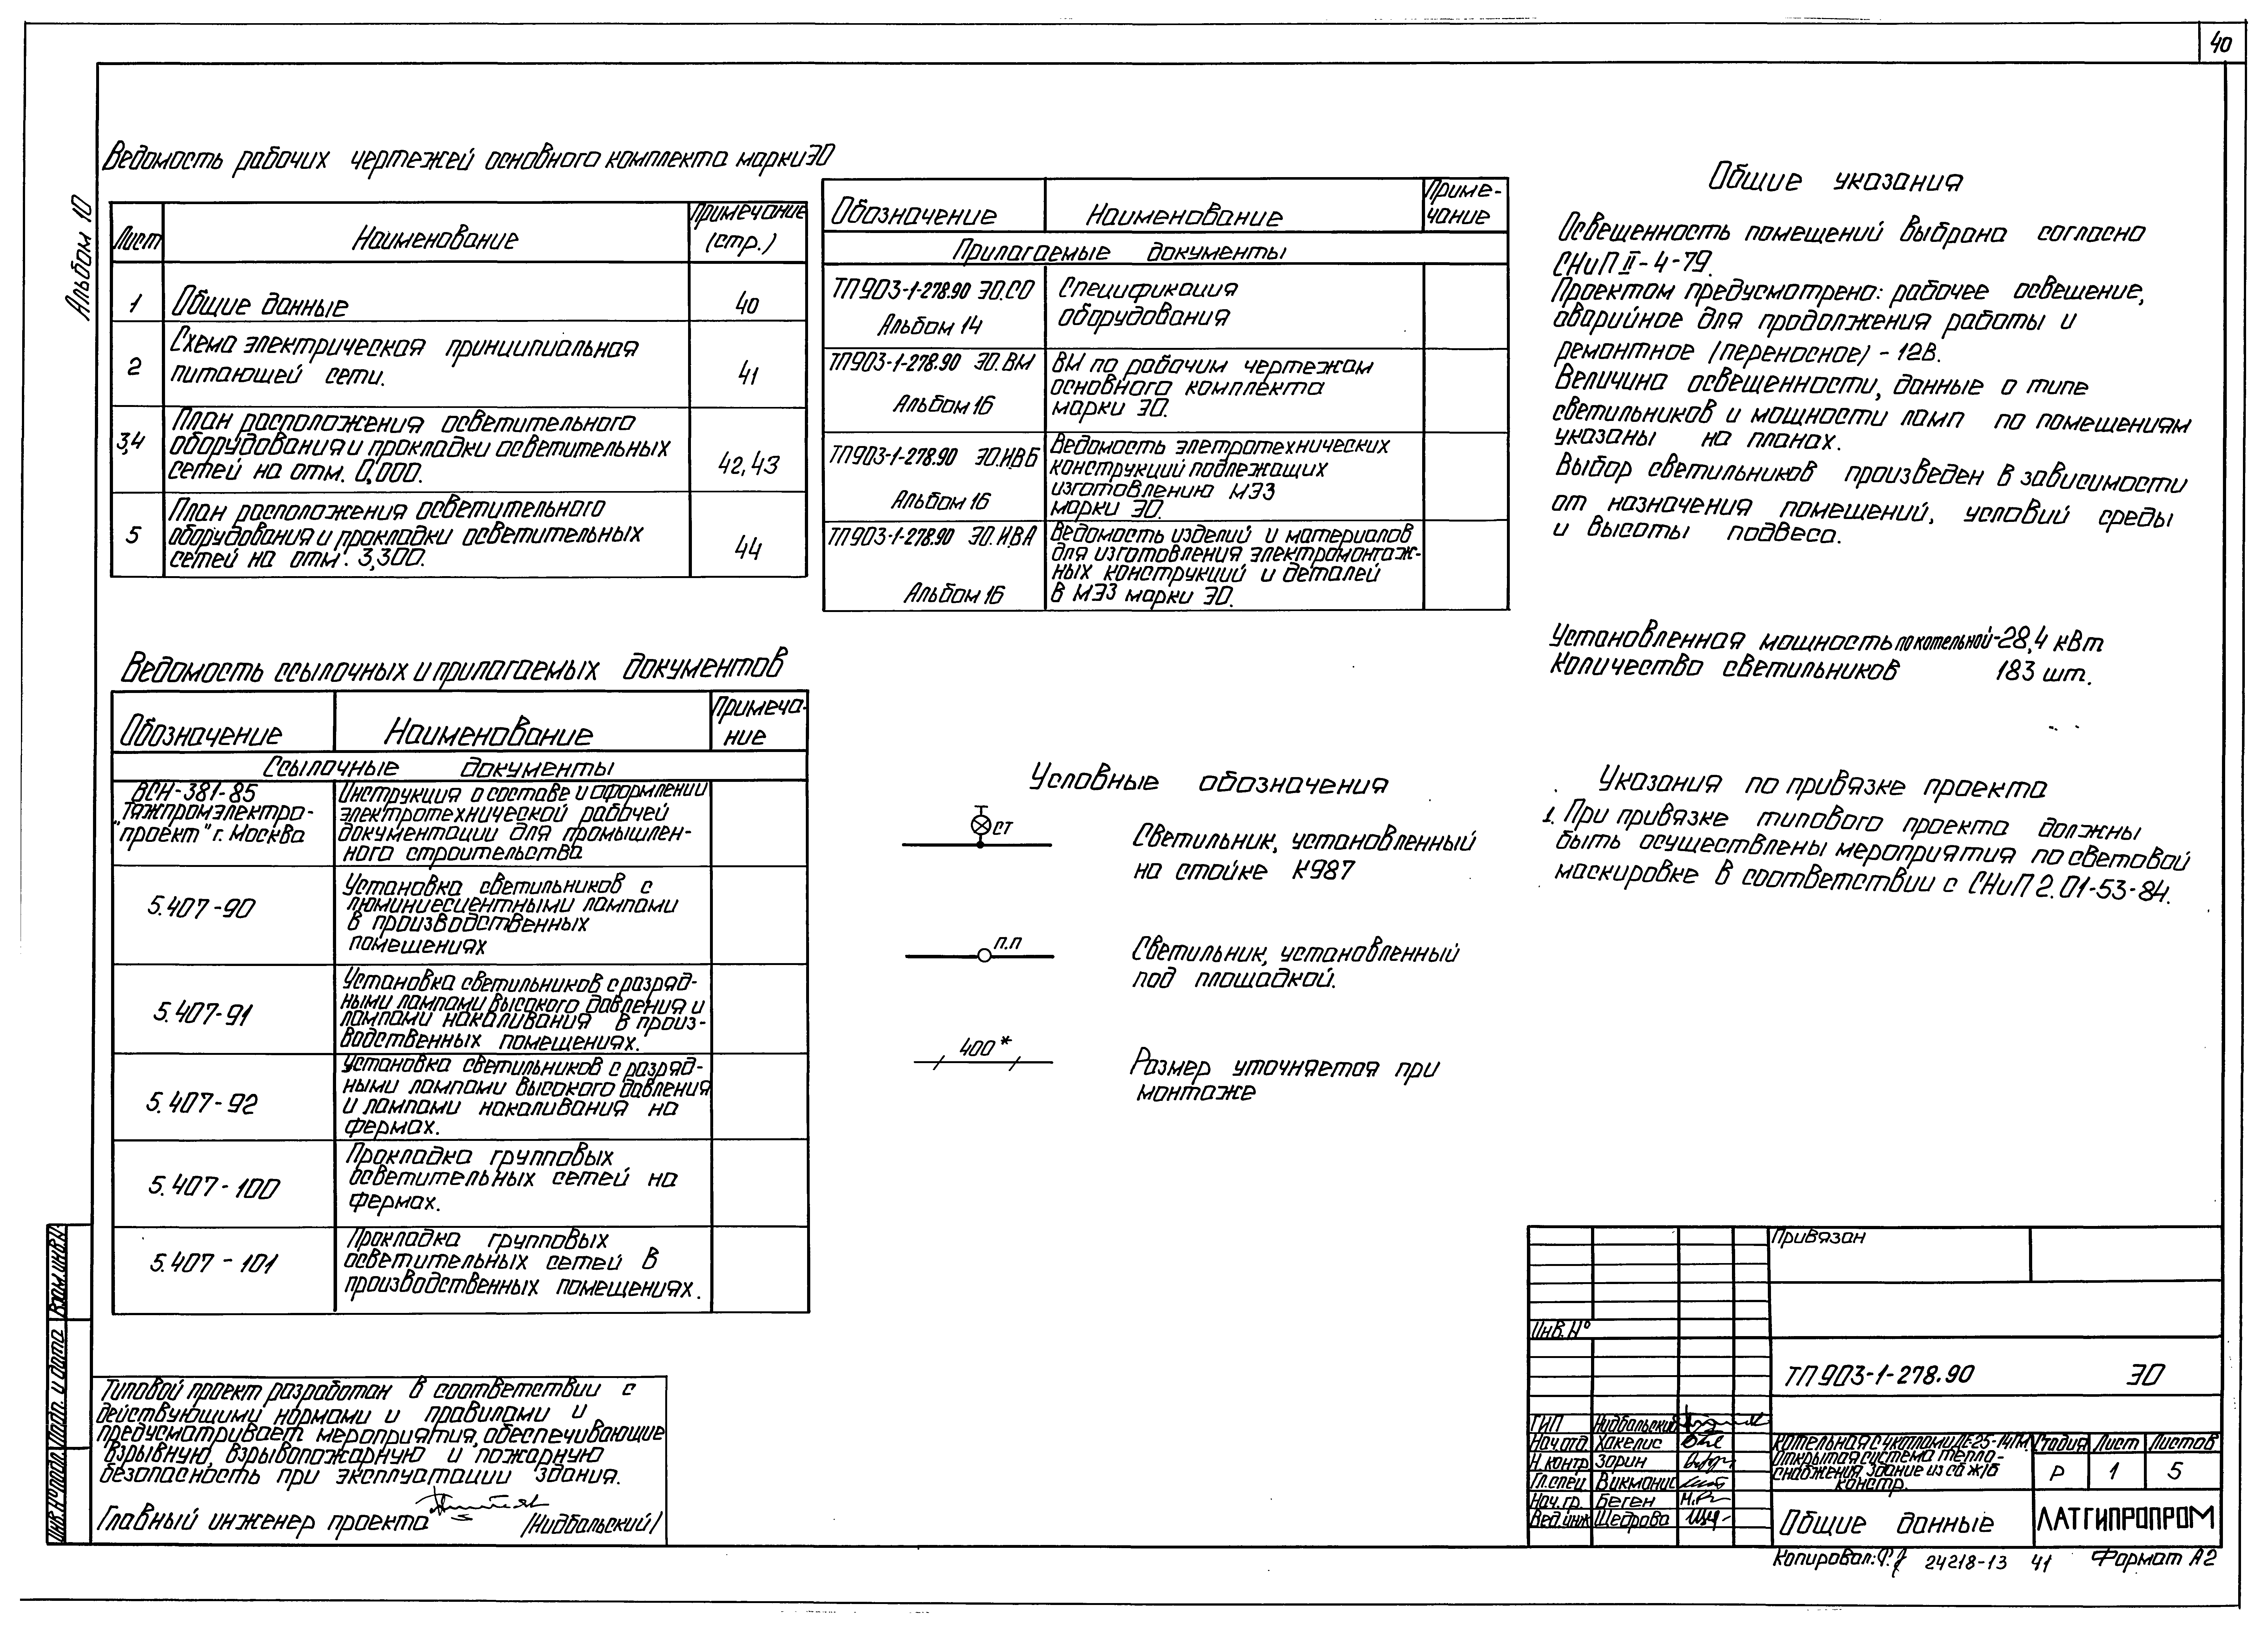 40
Альбом 10
Ведомость рабочих чертежей основного комплекта марки ЭО
Лист
Наименование
Примечание
(стр.)
1
Общие данные
40
2
Схема электрическая принципиальная
питающей сети.
41
3,4
План расположения осветительного
оборудования и прокладки осветительных
сетей на отм. 0,000.
42,43
5
План расположения осветительного
оборудования и прокладки осветительных
сетей на отм. 3,300.
44
Обозначение
Наименование
Приме-
чание
Прилагаемые документы
ТП903-1-278.90 ЭО.СО
Альбом 14
Спецификация
оборудования
ТП903-1-278.90 ЭО.ВМ
Альбом 16
ВМ по рабочим чертежам
основного комплекта
марки ЭО.
ТП903-1-278.90 ЭО.И.В.Б
Альбом 16
Ведомость элетротехнических
конструкций подлежащих
изготовлению МЭЗ
марки ЭО.
ТП903-1-278.90 ЭО.И.В.А
Альбом 16
Ведомость изделий и материалов
для изготовления электромонтаж-
ных конструкций и деталей
в МЭЗ марки ЭО.
Общие указания
Освещенность помещений выбрана согласно
СНиП II-4-79.
Проектом предусмотрено: рабочее освещение,
аварийное для продолжения работы и
ремонтное (переносное) - 12В.
Величина освещенности, данные о типе
светильников и мощности ламп по помещениям
указаны на планах.
Выбор светильников произведен в зависимости
от назначения помещений, условий среды
и высоты подвеса.
Установленная мощность по котельной-28,4 кВт
Количество светильников 183 шт.
Указания по привязке проекта
1. При привязке типового проекта должны
быть осуществлены мероприятия по световой
маскировке в соответствии с СНиП 2.01-53-84.
Ведомость ссылочных и прилагаемых документов
Обозначение
Наименование
Примеча-
ние
Ссылочные документы
ВСН-381-85
Тяжпромэлектро-
"проект" г. Москва
Инструкция о составе и оформлении
электротехнической рабочей
документации для промышлен-
ного строительства
5.407-90
Установка светильников с
люминиесцентными лампами
в производственных
помещениях
5.407-91
Установка светильников с разряд-
ными лампами высокого давления и
лампами накаливания в произ-
водственных помещениях.
5.407-92
Установка светильников с разряд-
ными лампами высокого давления
и лампами накаливания на
фермах.
5.407-100
Прокладка групповых
осветительных сетей на
фермах.
5.407-101
Прокладка групповых
осветительных сетей в
производственных помещениях.
Условные обозначения
ст
Светильник, установленный
на стойке К987
п.п
Светильник, установленный
под площадкой.
400*
Размер уточняется при
монтаже
Типовой проект разработан в соответствии с
действующими нормами и правилами и
предусматривает мероприятия, обеспечивающие
взрывную, взрывопожарную и пожарную
безопасность при эксплуатации здания.
Главный инженер проекта /Нидбальский/
Взам.инв.N
Подп. и дата
Инв.N°подл.
Привязан
Инв.N°
ТП903-1-278.90 ЭО
ГИП Нидбальский
Нач.отд. Хакелис
Н.контр Зорин
Гл.спец Викманис
Нач.гр. Беген
Вед.инж Щедрова
Котельная с 4 котлами ДЕ-25-14ГМ.
Открытая система тепло-
снабжения. Здание из сб ж/б
констр.
Стадия Лист Листов
Р 1 5
Общие данные
ЛАТГИПРОПРОМ
Копировал: 24218-13 41 Формат А2